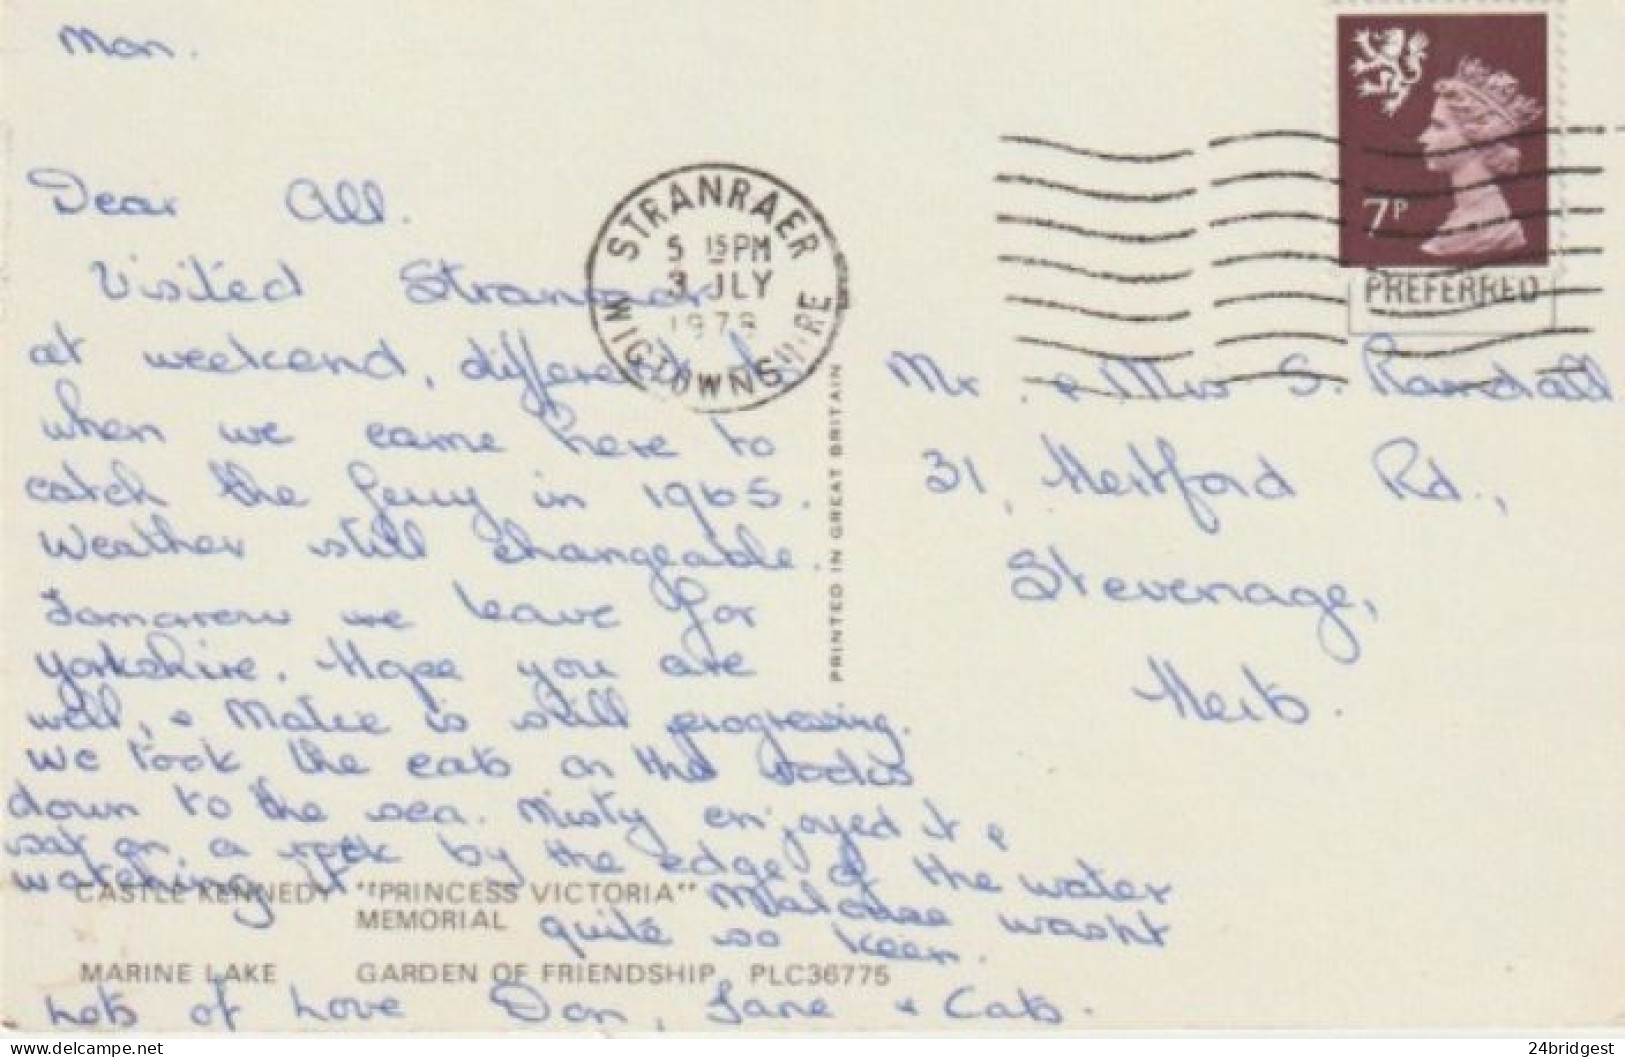 Mon.
Dear All.
Visited Stranraer
at weekend, different to
when we came here to
catch the ferry in 1965.
Weather still changeable.
Tomorrow we leave for
Yorkshire. Hope you are
well, & Malcie is still progressing.
We took the cats on the rocks
down to the sea. Misty enjoyed it &
sat on a rock by the edge of the water
watching it. wasn't
quite so keen.
Lots of Love Don, Jane & Cats.
STRANRAER
5 15 PM
3 JLY
1978
WIGTOWNSHIRE
7P
PREFERRED
Mr. & Mrs S. Randall
31, Hertford Rd.,
Stevenage,
Herts.
PRINTED IN GREAT BRITAIN
CASTLE KENNEDY "PRINCESS VICTORIA"
MEMORIAL
MARINE LAKE GARDEN OF FRIENDSHIP PLC36775
24bridgest